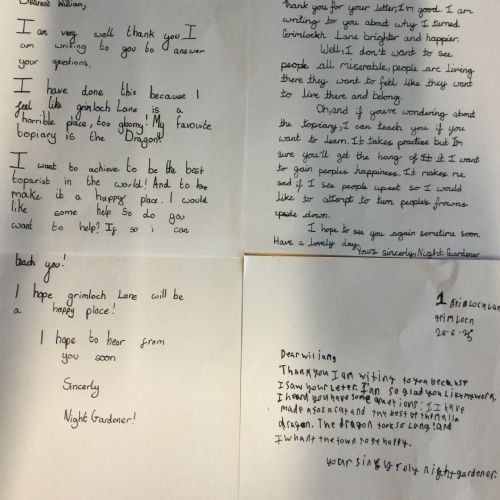 Dearest William,
I am very well thank you I
am writing to you to answer
your questions.
I have done this because I
feel like grimloch Lane is a
horrible place, too gloomy! My favourite
topiary is the Dragon!
I want to achieve to be the best
toparist in the world! And to be
make it a happy place. I would
like some help so do you
want to help? If so i can
teach you!
I hope grimloch Lane will be
a happy place!
I hope to hear from
you soon
Sincerly
Night Gardener!
Thank you for your letter, I'm good. I am
writing to you about why I turned
Grimlockh Lane brighter and happier.
Well, I don't want to see
people all miserable, people are living
there they want to felt like they want
to live there and belong.
Oh, and if you're wondering about
the topiary, I can teach you if you
want to learn. It takes practise but Im
sure you'll get the hang of it. I want
to gain peoples happiness. It makes me
sad if I see people upset so I would
like to attempt to turn peoples frowns
upside down.
I hope to see you again sometime soon.
Have a lovely day,
Yours sincerly, Night Gardener
1 GRIMLOCH LAN
GRIMLOCH
Dear wiliam
Thank you I am writing to you because
I saw your leter. I am so glad you like my work.
I heard you have some questions! I have
made also a cat and the best of them
dragon. The dragon took so long! and
I whant the town to be happy.
nightgardener.